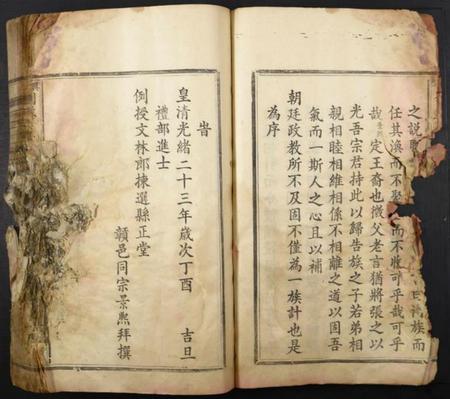 之說
任其渙而不聚而不收可乎哉可乎
哉定王裔也微父老言猶將張之以
光吾宗君持此以歸告族之子若弟相
親相睦相維相係不相離之道以固吾
氣而一斯人之心且以補
朝廷政教所不及固不僅為一族計也是
為序
旹
皇清光緒二十三年歲次丁酉 吉旦
禮部進士
例授文林郎揀選縣正堂
贛邑同宗景熙拜撰